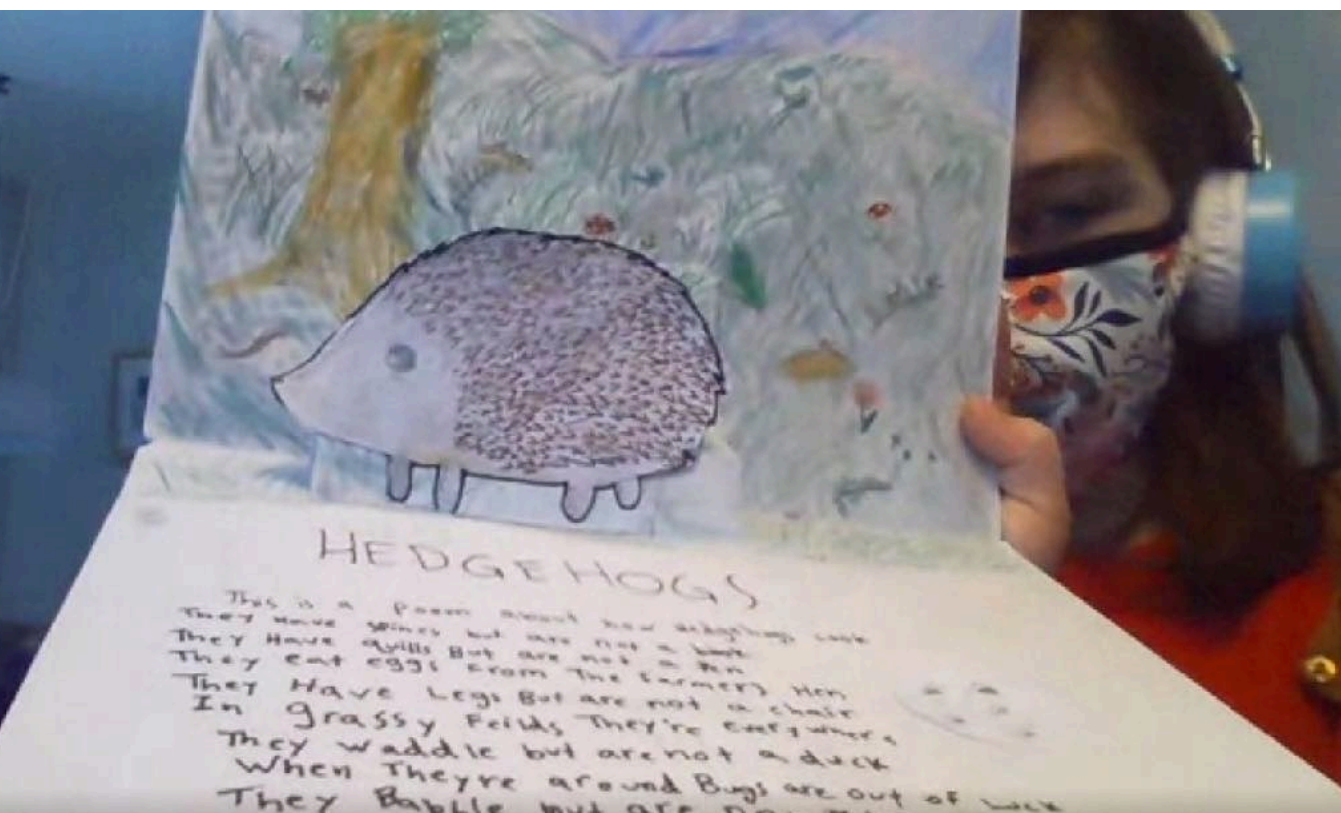 HEDGEHOGS
This is a Poem about how Hedgehogs Look
They Have spines but are not a book
They Have quills But are not a Pen
They eat eggs From The Farmers Hen
They Have Legs But are not a chair
In grassy Feilds They're everywhere
They waddle but are not a duck
When Theyre around Bugs are out of luck
They Babble but are